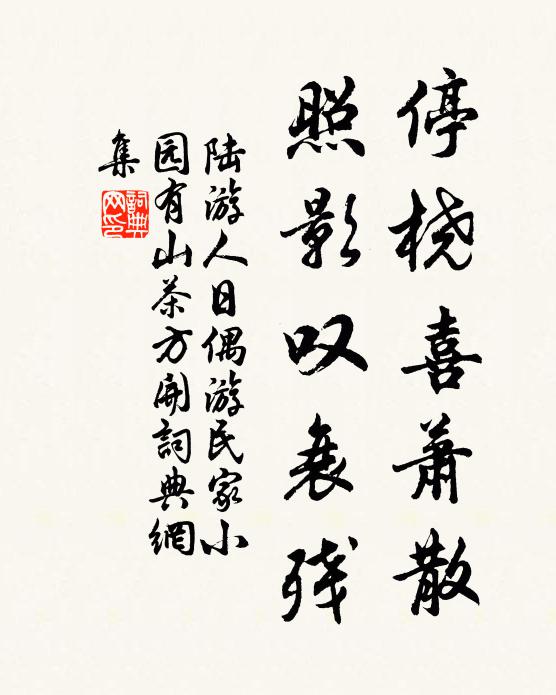 停桡喜萧散
照影叹衰残
陆游人日偶游民家小
园有山茶方開詞典網
集
詞典
网印